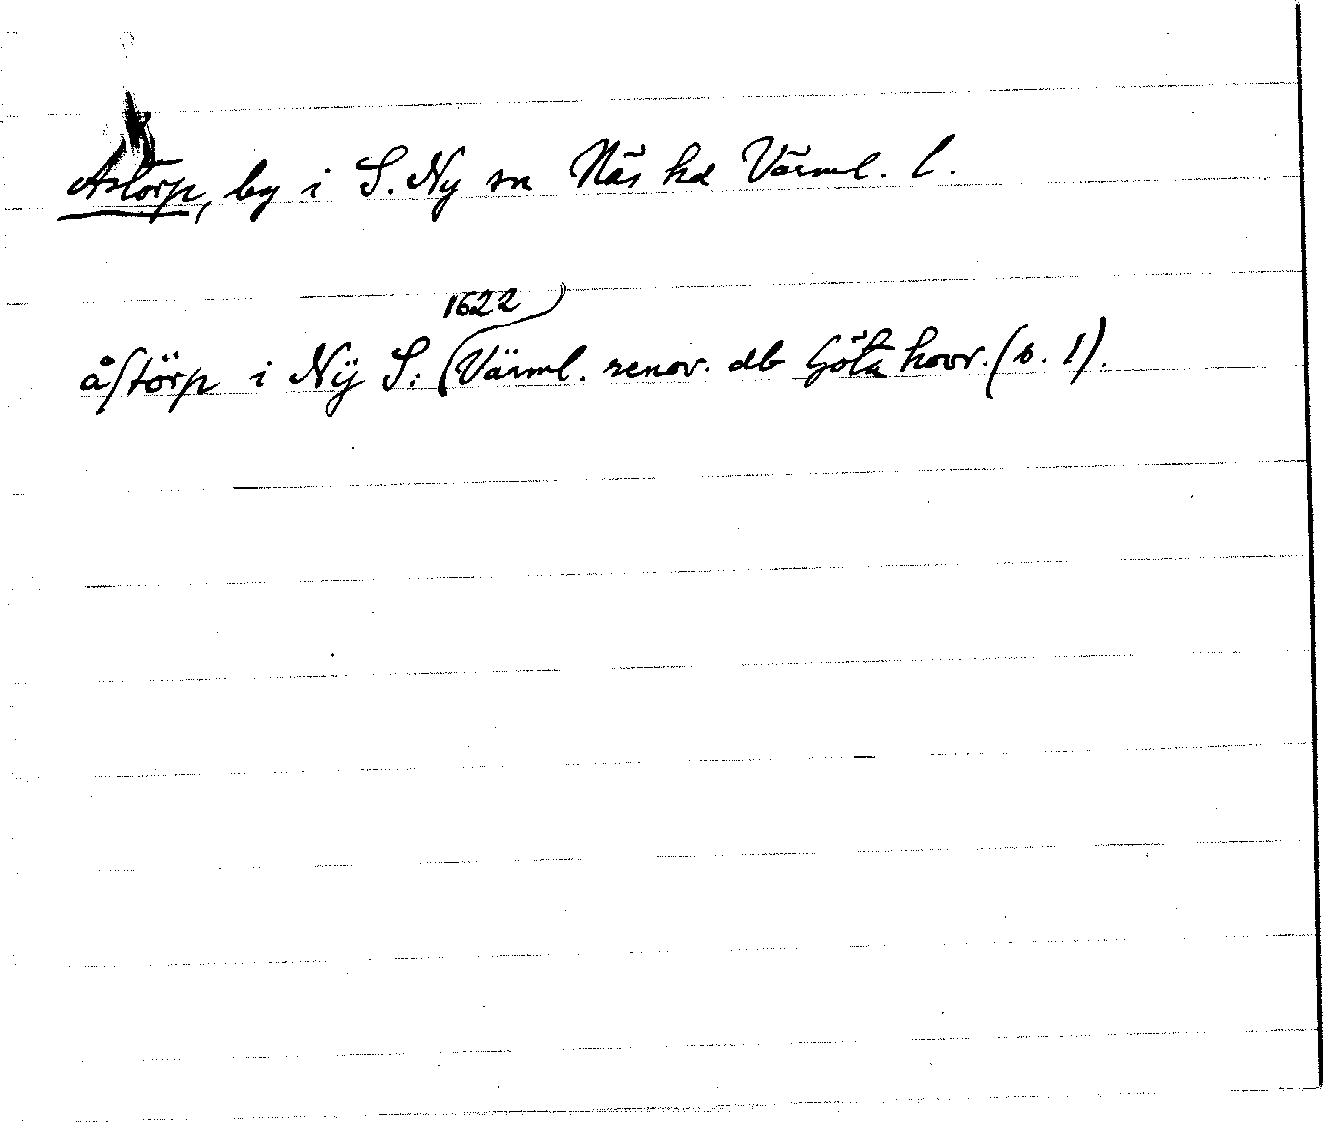 Astorp, by i S. Ny sn Näs hd Värml. l.
1622
åstörp i Nÿ S: (Värml. renov. db Göta hovr. (s. 1).